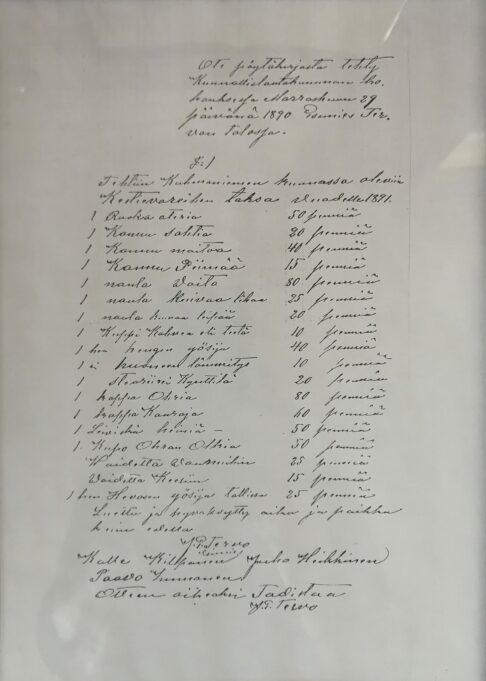 Ote pöytäkirjasta tehty
Kunnallislautakunnan ko.
kouksessa Marraskuun 29
päivänä 1890 Esimies Ter.
von talossa.
§:1
Tehtiin Kuhmoniemen kunnassa oleviin
Kestievareihin taksa vuodelle 1891.
1 Ruoka ateria 50 penniä
1 Kannu sahtia 20 penniä
1 Kannu maitoa 40 penniä
1 Kannu Piimää 15 penniä
1 naula Voita 80 penniä
1 naula kuivaa lihaa 25 penniä
1 naula kuivaa leipää 20 penniä
1 Kuppi Kahvia eli teetä 10 penniä
1 hen hengen yösija 40 penniä
1 n huoneen lämmitys 10 penniä
1 steariini Kynttilä 20 penniä
1 kappa Ohria 80 penniä
1 kappa Kauroja 60 penniä
1 Leiviskä heiniä – 50 penniä
1 Kupo Ohran Olkia 50 penniä
25 penniä
15 penniä
1 hen Hevosen yösija tallissa 25 penniä
Luettu ja hyväksytty aika ja paikka
kuin edessä
J.P. Tervo
esimies
Kalle Kilponen Juho Heikkinen
Paavo
Otteen oikeaksi Todistaa
J.P. Tervo